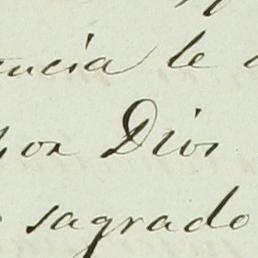 encia le
por Dios
sagrado